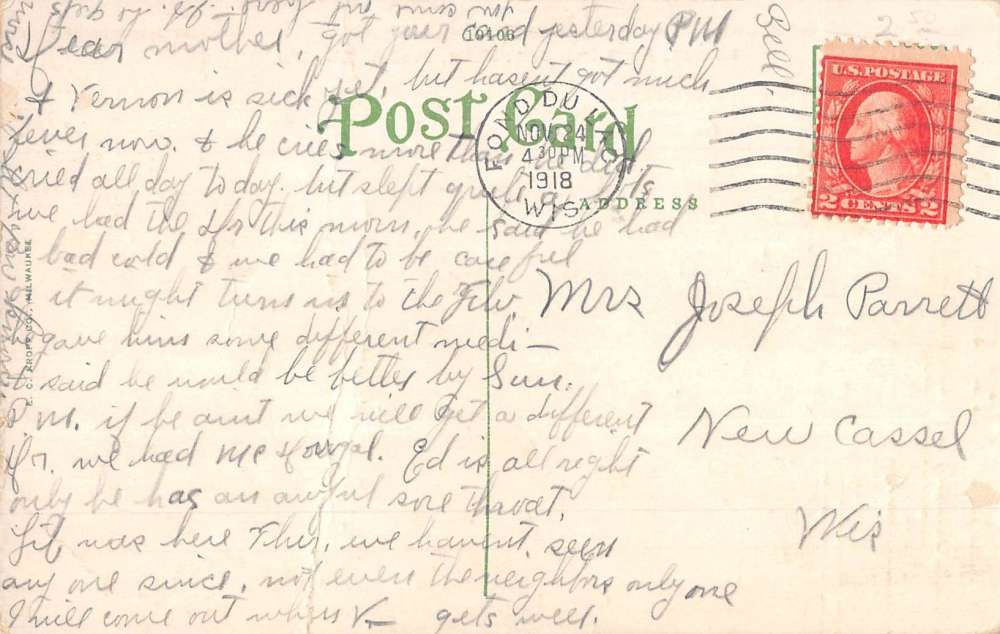 Dear mother, got your card yesterday PM
& Vernon is sick yet, but hasent got much
fever now. & he cries more than he did.
cried all day to day. but slept quite a bit
we had the Dr this morn, he said he had
bad cold & we had to be careful
it might turn in to the Flu,
he gave him some different medi-
& said he would be better by Sun.
P.M. if he aint we will get a different
Dr. we had McDougal. Ed is all right
only he has an awful sore throat,
was here Thur, we havent seen
any one since, not even the neighbors only one
I will come out when V- gets well.
Bell
2 50
10106
Post Card
ADDRESS
FOND DU LAC
NOV 24
4 30 PM
1918
WIS
U.S. POSTAGE
2 CENTS 2
Mrs Joseph Parrett
New Cassel
Wis
E. C. KROPP CO., MILWAUKEE